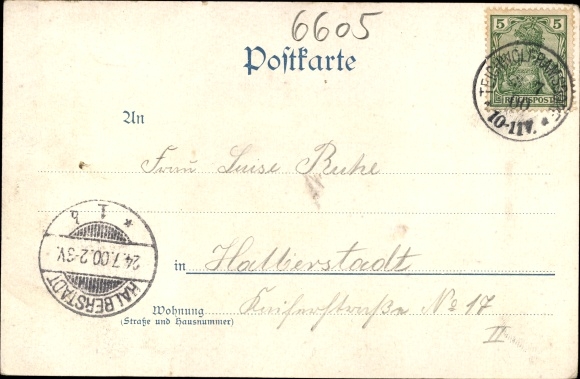 6605
Postkarte
5
REICHSPOST
10-11V.
An
Frau Luise Ruhe
in Halberstadt
Wohnung Kaiserstraße No 17
(Straße und Hausnummer)
II
HALBERSTADT
24.7.00.2-3V.
* 1 b